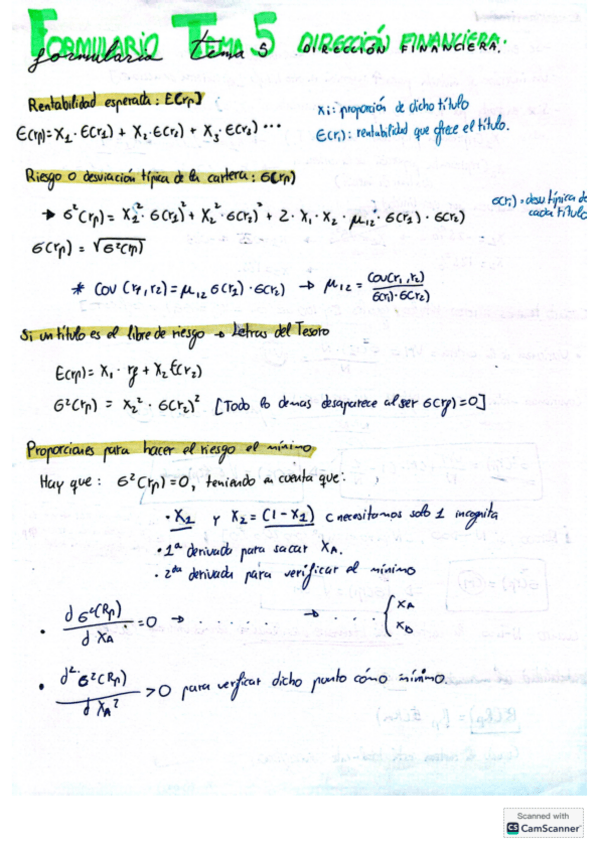 FORMULARIO TEMA 5 DIRECCIÓN FINANCIERA.
formulario tema 5 DIRECCIÓN FINANCIERA.
Rentabilidad esperada: E(rp)
E(rp) = X1 · E(r1) + X2 · E(r2) + X3 · E(r3) ···
Xi: proporción de dicho título
E(r1): rentabilidad que ofrece el título.
Riesgo o desviación típica de la cartera: σ(rp)
→ σ²(rp) = X1² · σ(r1)² + X2² · σ(r2)² + 2 · X1 · X2 · μ12 · σ(r1) · σ(r2)
σ(r1) = desv típica de
cada título
σ(rp) = √σ²(rp)
* COV (r1, r2) = μ12 σ(r1) · σ(r2) → μ12 = cov(r1, r2) / σ(r1) · σ(r2)
Si un título es el libre de riesgo → Letras del Tesoro
E(rp) = X1 · rf + X2 E(r2)
σ²(rp) = X2² · σ(r2)² [Todo lo demas desaparece al ser σ(rf) = 0]
Proporciones para hacer el riesgo el mínimo
Hay que: σ²(rp) = 0, teniendo en cuenta que:
· X1 y X2 = (1 - X1) (necesitamos solo 1 incognita
· 1ª derivada para sacar XA.
· 2da derivada para verificar el mínimo
· d σ²(Rp) / d XA = 0 → · · · · · → · · · { XA
XB
· d² σ²(Rp) / d XA² > 0 para verficar dicho punto cómo mínimo.
Scanned with
CS CamScanner